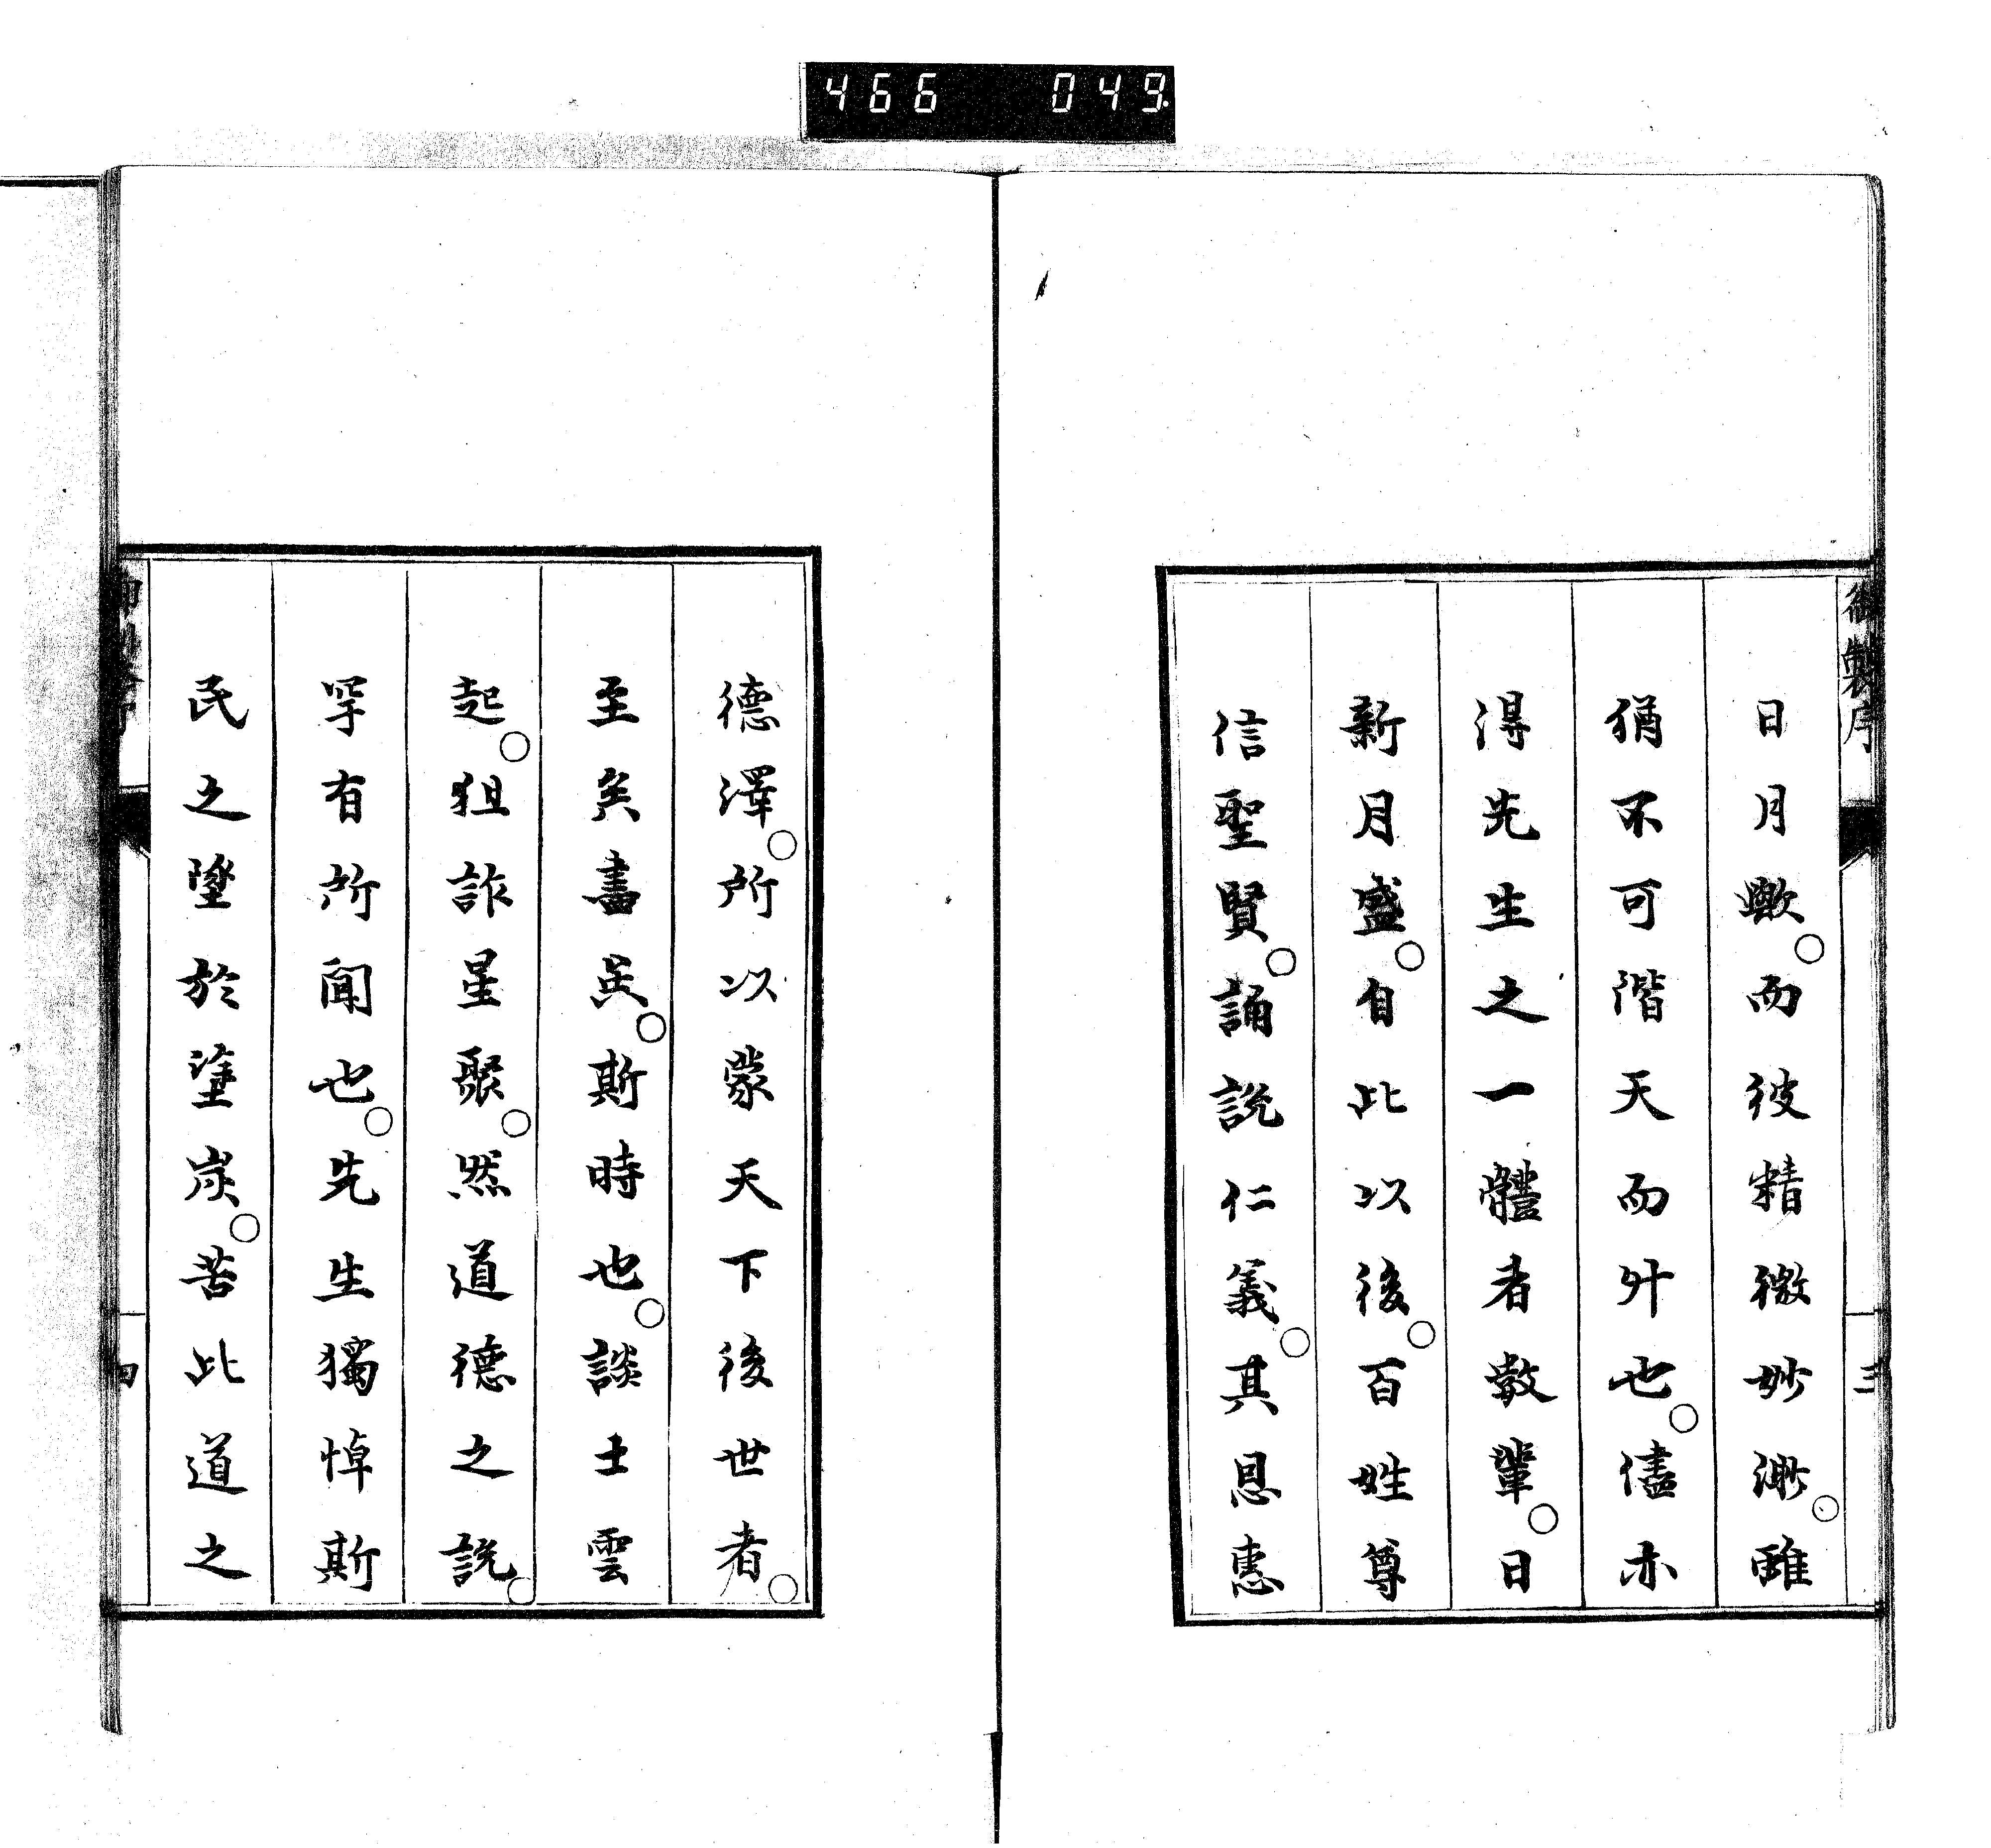 466 049
御製序
三
日月歟而彼精微妙渺雖
猶不可階天而升也儘亦
得先生之一體者數輩日
新月盛自此以後百姓尊
信聖賢誦說仁義其恩惠
德澤所以蒙天下後世者
至矣盡矣斯時也談士雲
起狙詐星聚然道德之說
罕有所聞也先生獨悼斯
民之墜於塗炭苦此道之
四